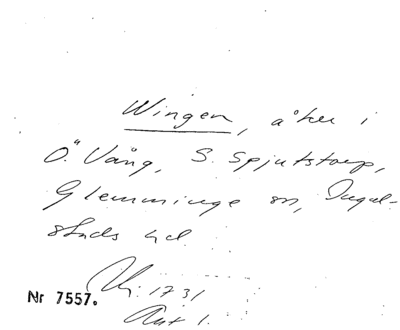 Wingen, åker i
Ö. Vång, S. Spjutstorp,
Glemminge sn, Ingel-
stads hd.
1731
Nr 7557.
Akt 1.